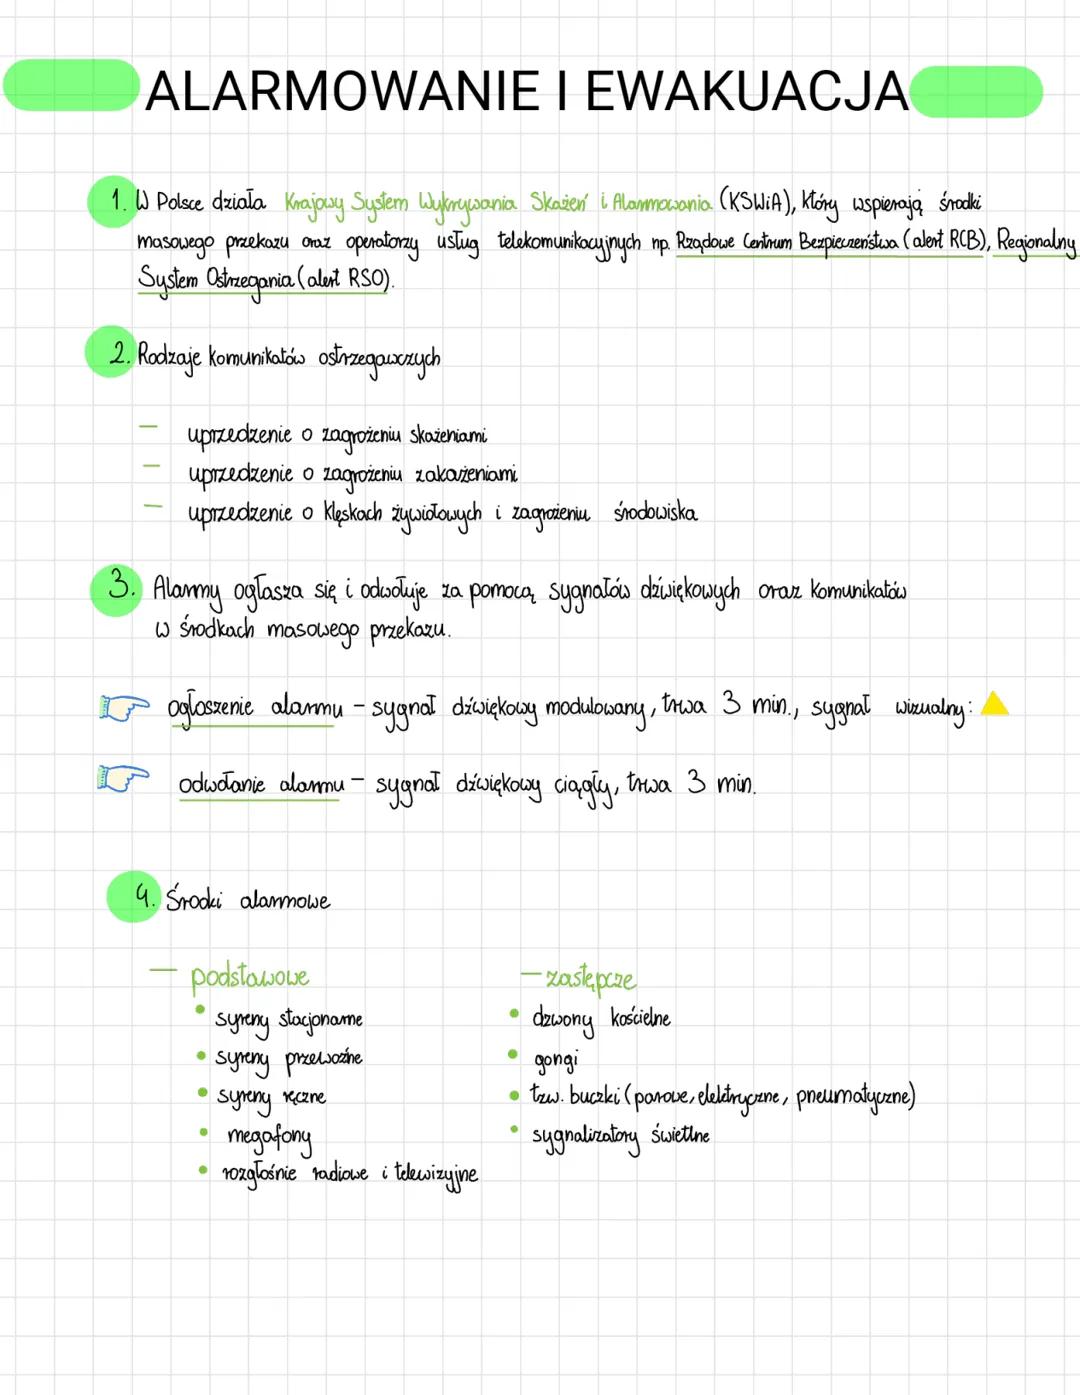 ALARMOWANIE I EWAKUACJA
1. W Polsce działa Krajowy System Wykrywania Skażeń i Alarmowania (KSWiA), który wspierają środki
masowego przekazu oraz operatorzy usług telekomunikacyjnych np. Rządowe Centrum Bezpieczeństwa (alert RCB), Regionalny
System Ostrzegania (alert RSO).
2. Rodzaje komunikatów ostrzegawczych
— uprzedzenie o zagrożeniu skażeniami
— uprzedzenie o zagrożeniu zakażeniami
— uprzedzenie o klęskach żywiołowych i zagrożeniu środowiska
3. Alarmy ogłasza się i odwołuje za pomocą sygnałów dźwiękowych oraz komunikatów
w środkach masowego przekazu.
ogłoszenie alarmu – sygnał dźwiękowy modulowany, trwa 3 min., sygnał wizualny:
odwołanie alarmu – sygnał dźwiękowy ciągły, trwa 3 min.
4. Środki alarmowe
— podstawowe
• syreny stacjonarne
• syreny przewoźne
• syreny ręczne
• megafony
• rozgłośnie radiowe i telewizyjne
— zastępcze
• dzwony kościelne
• gongi
• tzw. buczki (parowe, elektryczne, pneumatyczne)
• sygnalizatory świetlne